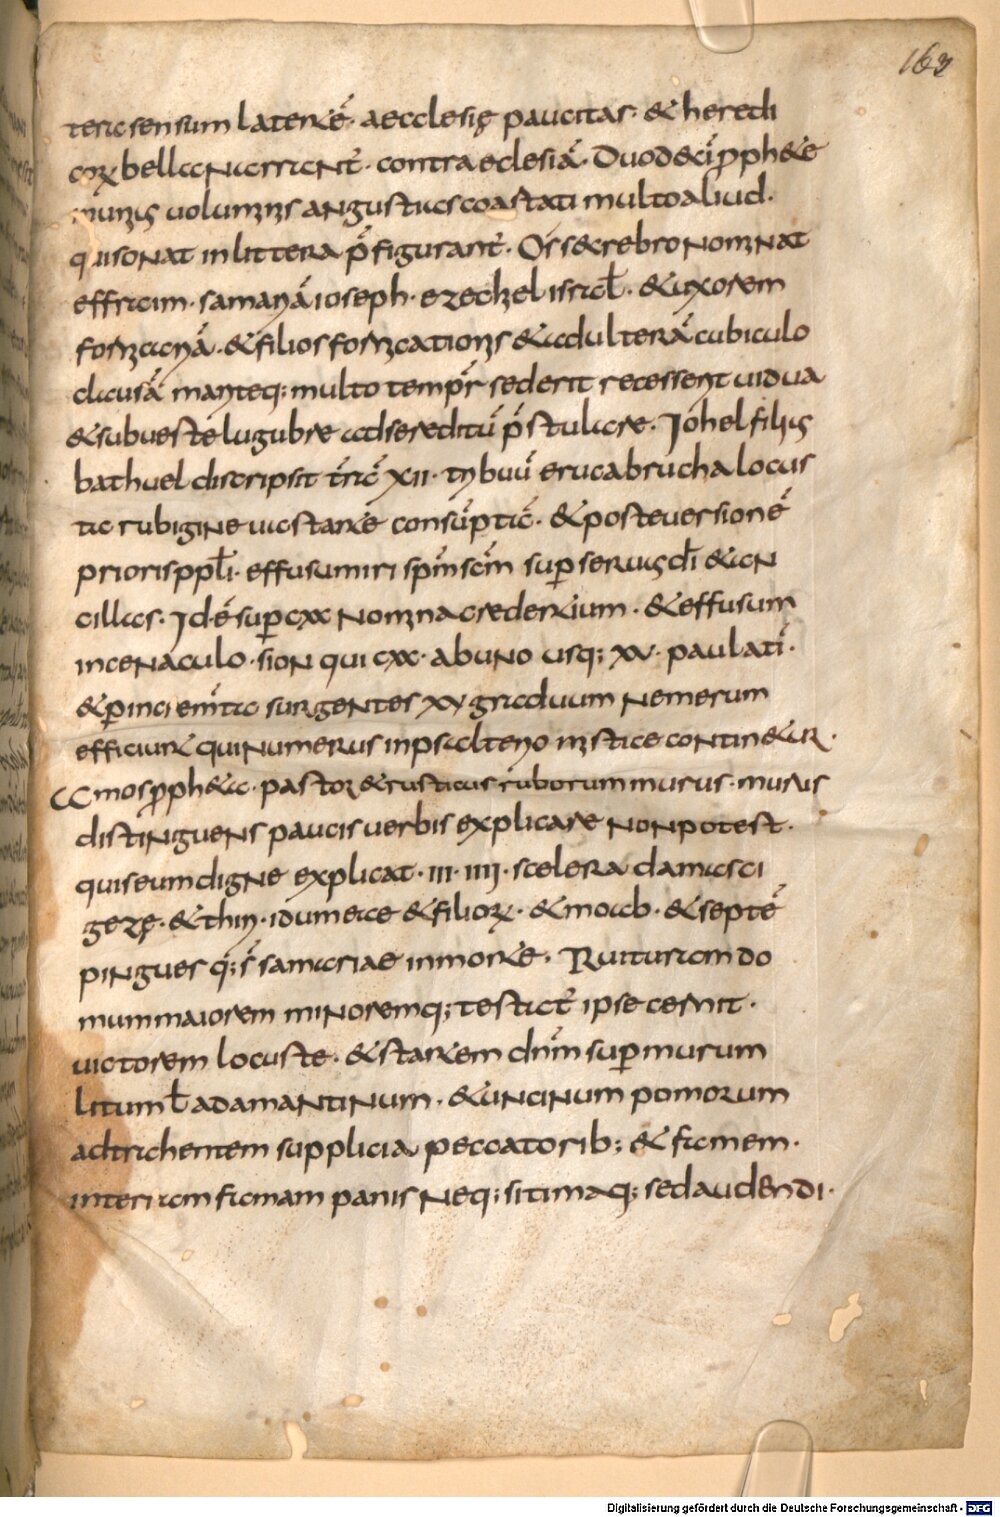 163
tera sensum latentē· aecclesię paucitas· & heredi
corꝝ bella narrant̄· contra eclesiā· Duodeci ꝓph&e
in unis uoluminis angustias coastati multo aliud·
qui sonat in littera p̄figurant̄· Os&e crebro nominat
effraim· samariā ioseph· ezechiel israhel· & uxorem
fornicariā· & filios fornicationis & adulterā cubiculo
clausā mariteq; multo tempr̄ sederit recessent uidua
& sub ueste lugubre ad sereditū p̄stulare· Iohel filius
bathuel discripsit t̄rā XII· tribuū eruca brucha locus
ta rubigine uastante consūptā· & post euersionē
prioris ppl̄i· effusum iri sp̄m sc̄m super seruus dī & an
cillas· Id ē super cxx nomina credentium· & effusum
in cenaculo· sion qui cxx· ab uno usq; xv· paulatī·
& per incremīta surgentes xv graduum nemerum
efficiunt qui numerus in psalterio mistice contin&ur·
Amos ꝓph&a· pastor & rusticus ruborum murus· muris
distinguens paucis uerbis explicare non potest·
quis eum digne explicat· III· IIII· scelera damasci
gezę· & thiri· idumeae & filiorꝝ· & moab· & septē
pingues q; s̄ samariae in monte· Ruituram do
mum maiorem minoremq; testat̄ ipse cernit·
uictorem locuste· & stantem dn̄m super murum
litum ł adamantinum· & uncinum pomorum
adtrahentem supplicia peccatorib; & famem·
in terram famam panis neq; sitim aq; sed audiendi·
Digitalisierung gefördert durch die Deutsche Forschungsgemeinschaft - DFG